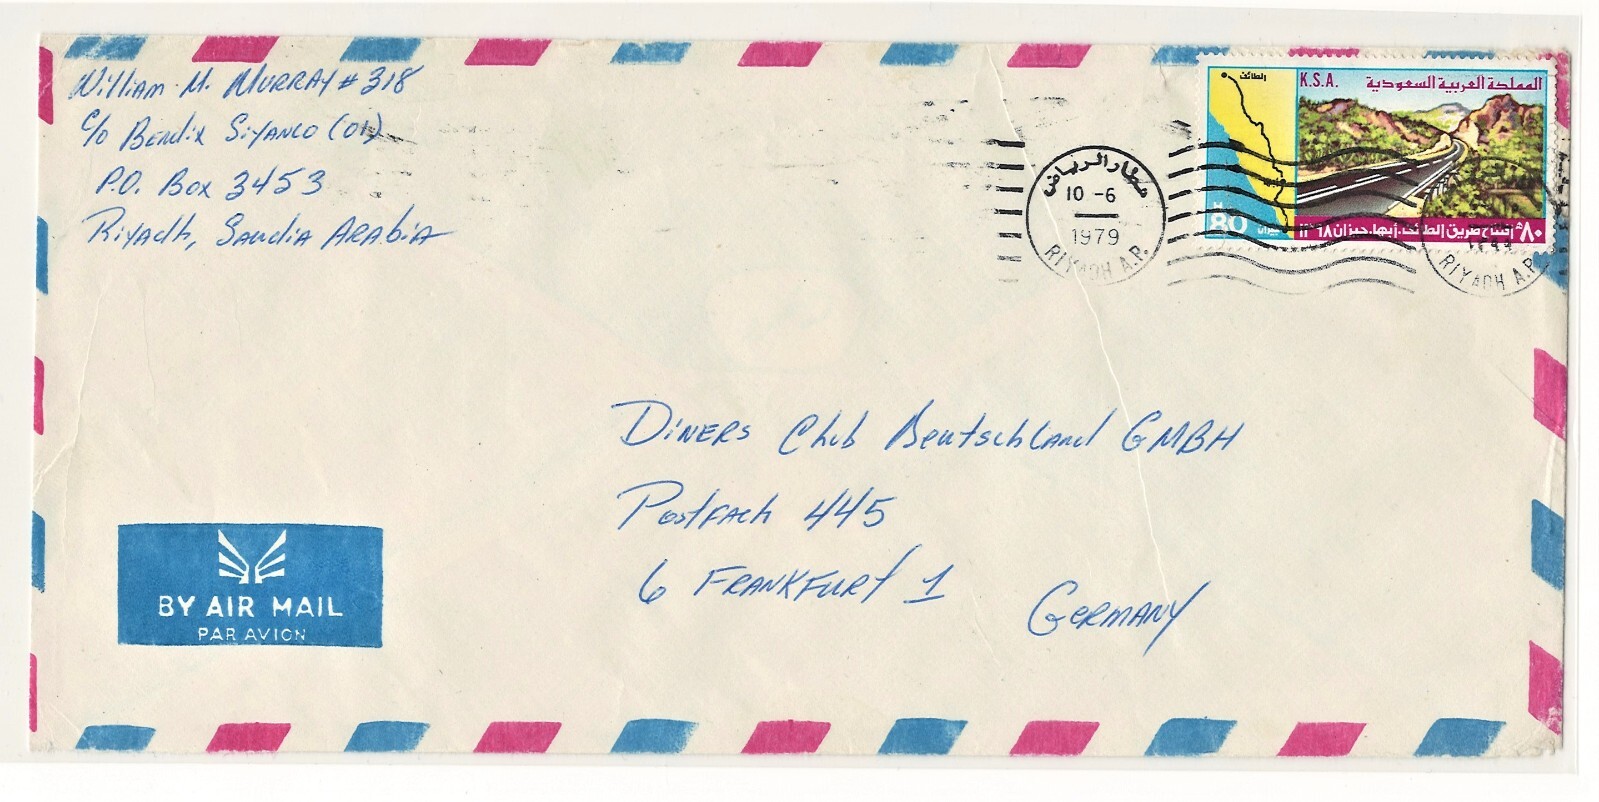 William M. Murray # 318
c/o Bendix Siyanco (01)
P.O. Box 3453
Riyadh, Saudia Arabia
مطار الرياض
10 -6
1979
RIYADH A.P.
الطائف
K.S.A.
المملكة العربية السعودية
H
80
جيزان
٨٠ هـ افتتاح طريق الطائف، أبها، جيزان
RIYADH A.P.
Diners Club Deutschland GMBH
Postfach 445
6 Frankfurt 1
Germany
BY AIR MAIL
PAR AVION